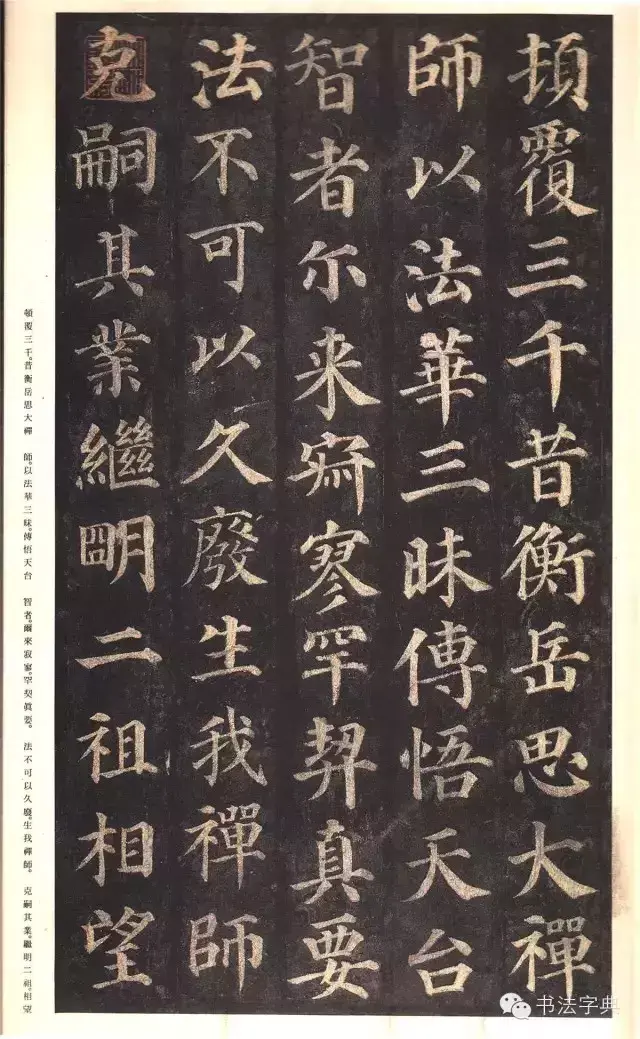 頂覆三千昔衡岳思大禪
師以法華三昧傳悟天台
智者尓来寂寥罕契真要
法不可以久廢生我禪師
克嗣其業繼明二祖相望
頓覆三千。昔衡岳思大禪 師。以法華三昧。傳悟天台 智者。爾來寂寥。罕契眞要。 法不可以久廢。生我禪師。 克嗣其業。繼明二祖。相望
书法字典